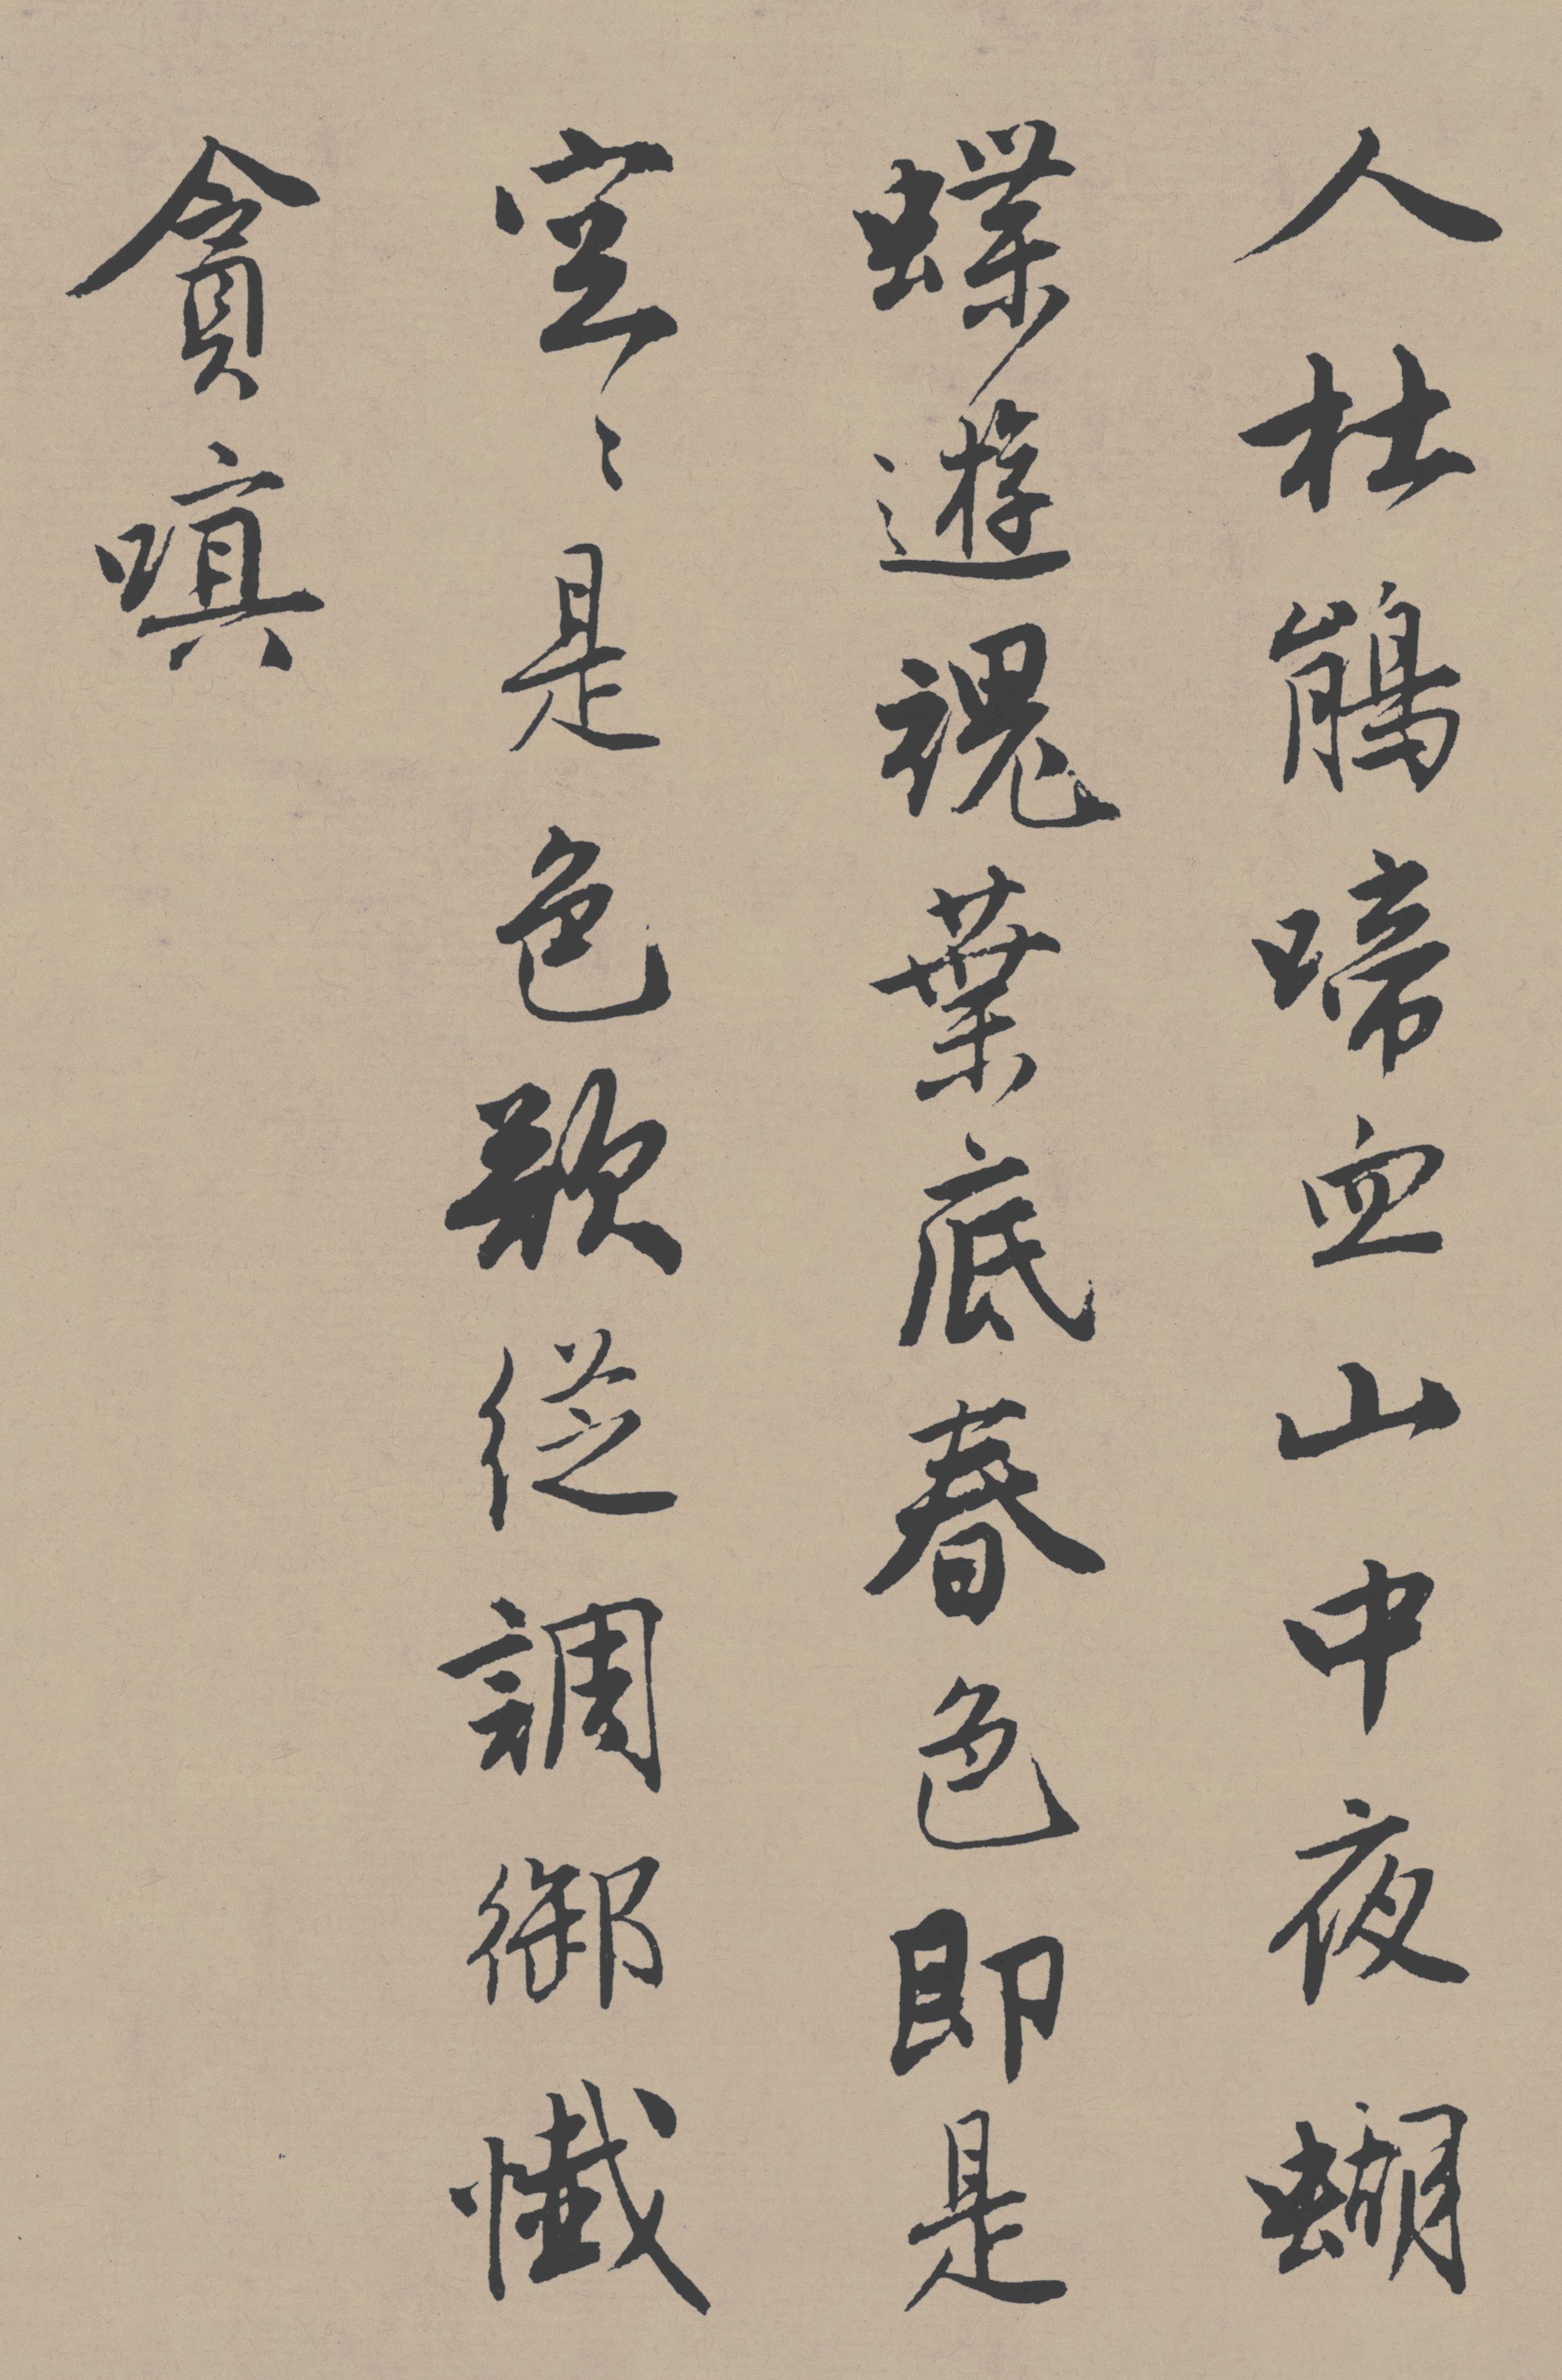 人杜鵑啼血山中夜蝴
蝶遊魂葉底春色即是
空〻是色欲從調御懺
貪嗔